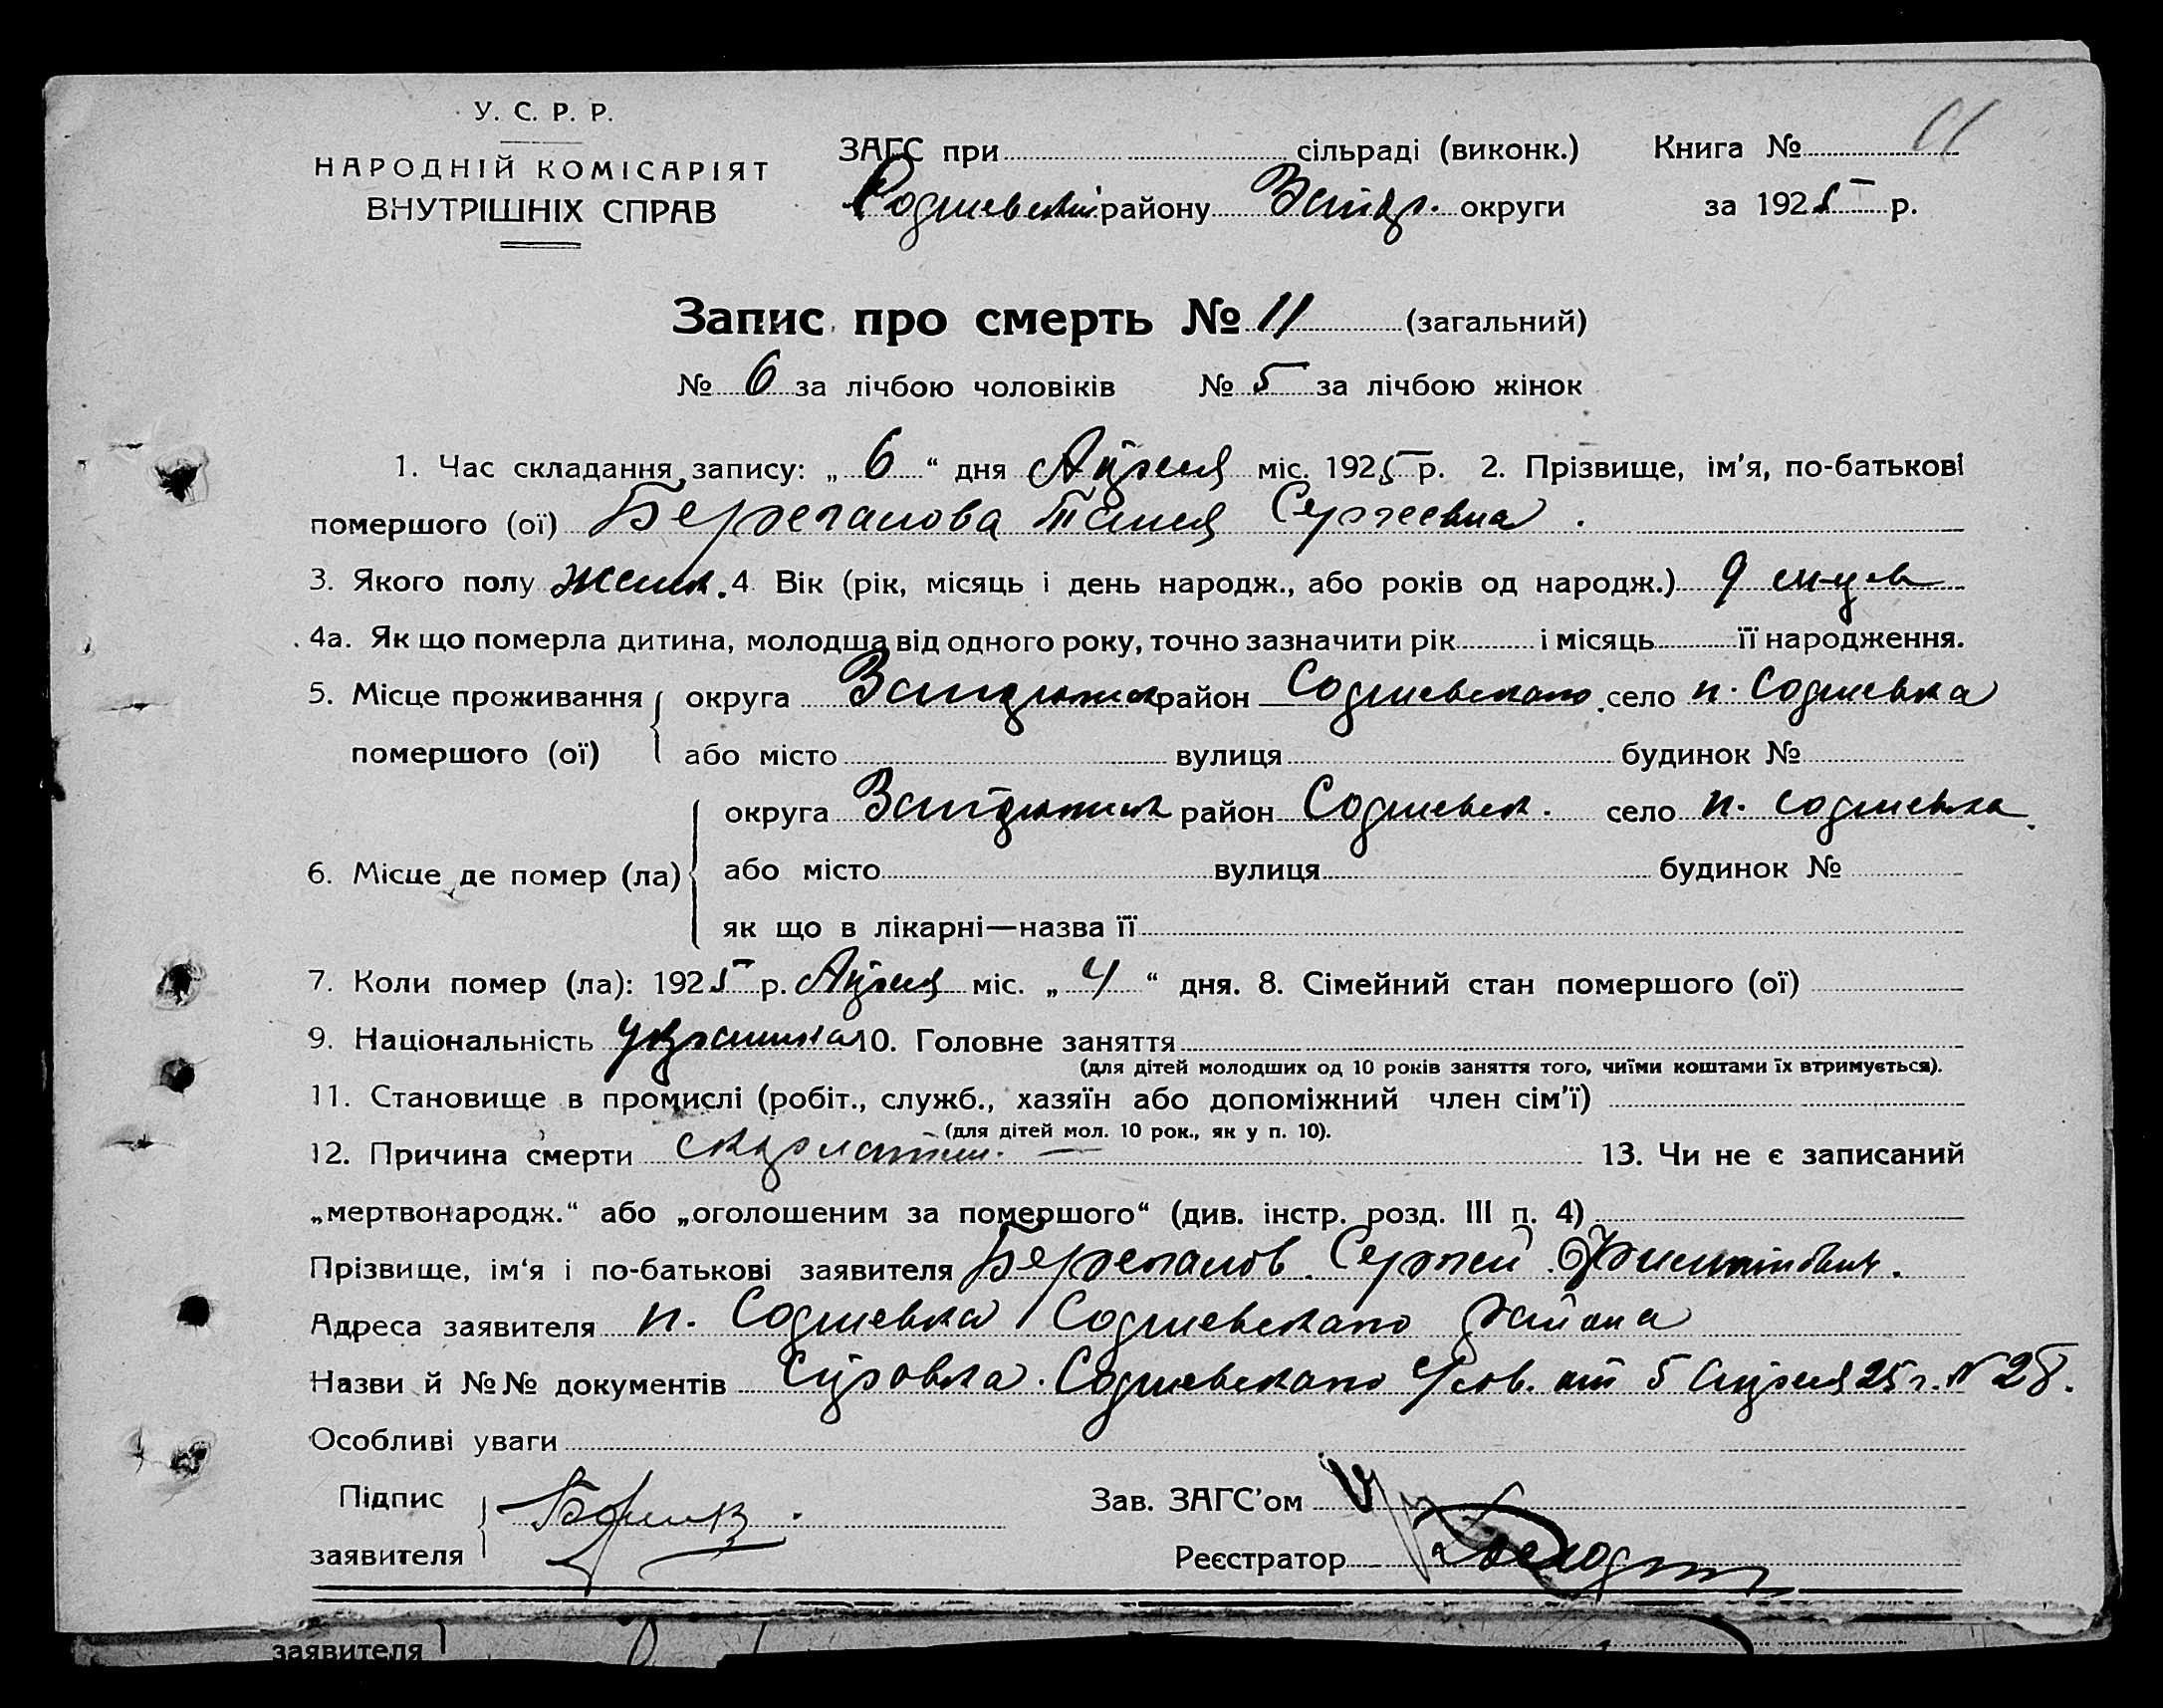 У. С. Р. Р.
НАРОДНІЙ КОМІСАРІЯТ
ВНУТРІШНІХ СПРАВ
ЗАГС при сільраді (виконк.) Книга №
району округи за 1925 р.
Запис про смерть № 11 (загальний)
№ 6 за лічбою чоловіків № 5 за лічбою жінок
1. Час складання запису: „ 6 “ дня Апреля міс. 1925 р. 2. Прізвище, ім’я, по-батькові
помершого (ої) Таисия Сергеевна
3. Якого полу женск. 4. Вік (рік, місяць і день народж., або років од народж.) 9 м-цев
4а. Як що померла дитина, молодша від одного року, точно зазначити рік і місяць її народження.
5. Місце проживання округа район Софиевского село п. Софиевка
помершого (ої) або місто вулиця будинок №
округа район Софиевск. село п. Софиевка
6. Місце де помер (ла) або місто вулиця будинок №
як що в лікарні—назва її
7. Коли помер (ла): 1925 р. Апреля міс. „ 4 “ дня. 8. Сімейний стан помершого (ої)
9. Національність украинка 10. Головне заняття
(для дітей молодших од 10 років заняття того, чиїми коштами їх втримується).
11. Становище в промислі (робіт., служб., хазяїн або допоміжний член сім’ї)
(для дітей мол. 10 рок., як у п. 10).
12. Причина смерти скарлатин. 13. Чи не є записаний
„мертвонародж.“ або „оголошеним за помершого“ (див. інстр. розд. III п. 4)
Прізвище, ім‘я і по-батькові заявителя Сергей
Адреса заявителя п. Софиевка Софиевского района
Назви й №№ документів Справка Софиевского от 5 Апреля 25 г. N 28.
Особливі уваги
Підпис Зав. ЗАГС’ом
заявителя Реєстратор
заявителя